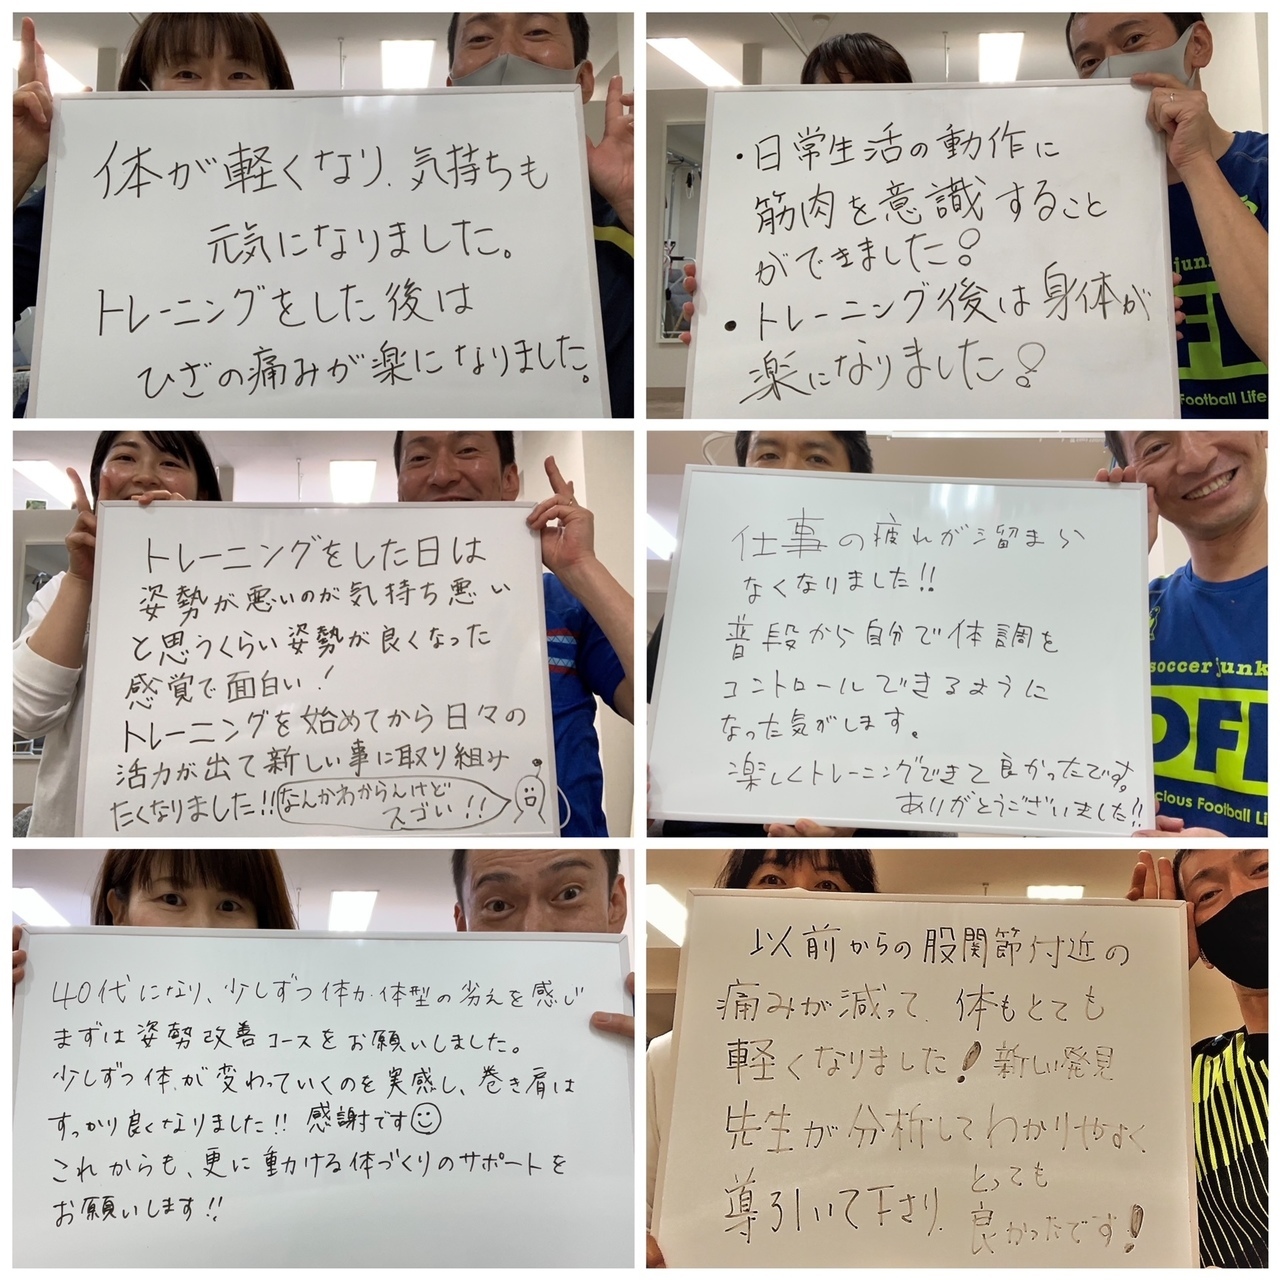 体が軽くなり、気持ちも
元気になりました。
トレーニングをした後は
ひざの痛みが楽になりました。
・日常生活の動作に
筋肉を意識すること
ができました!
・トレーニング後は身体が
楽になりました!
junk
Football Life
トレーニングをした日は
姿勢が悪いのが気持ち悪い
と思うくらい姿勢が良くなった
感覚で面白い!
トレーニングを始めてから日々の
活力が出て新しい事に取り組み
たくなりました!!
なんかわからんけど
スゴい!!
仕事の疲れが溜まら
なくなりました!!
普段から自分で体調を
コントロールできるように
なった気がします。
楽しくトレーニングできて良かったです。
ありがとうございました!!
soccer junk
Football Li
40代になり、少しずつ体力・体型の劣えを感じ
まずは姿勢改善コースをお願いしました。
少しずつ体が変わっていくのを実感し、巻き肩は
すっかり良くなりました!! 感謝です☺
これからも、更に動ける体づくりのサポートを
お願いします!!
以前からの股関節付近の
痛みが減って、体もとても
軽くなりました! 新しい発見
先生が分析してわかりやすく
導引いて下さり、とっても
良かったです!